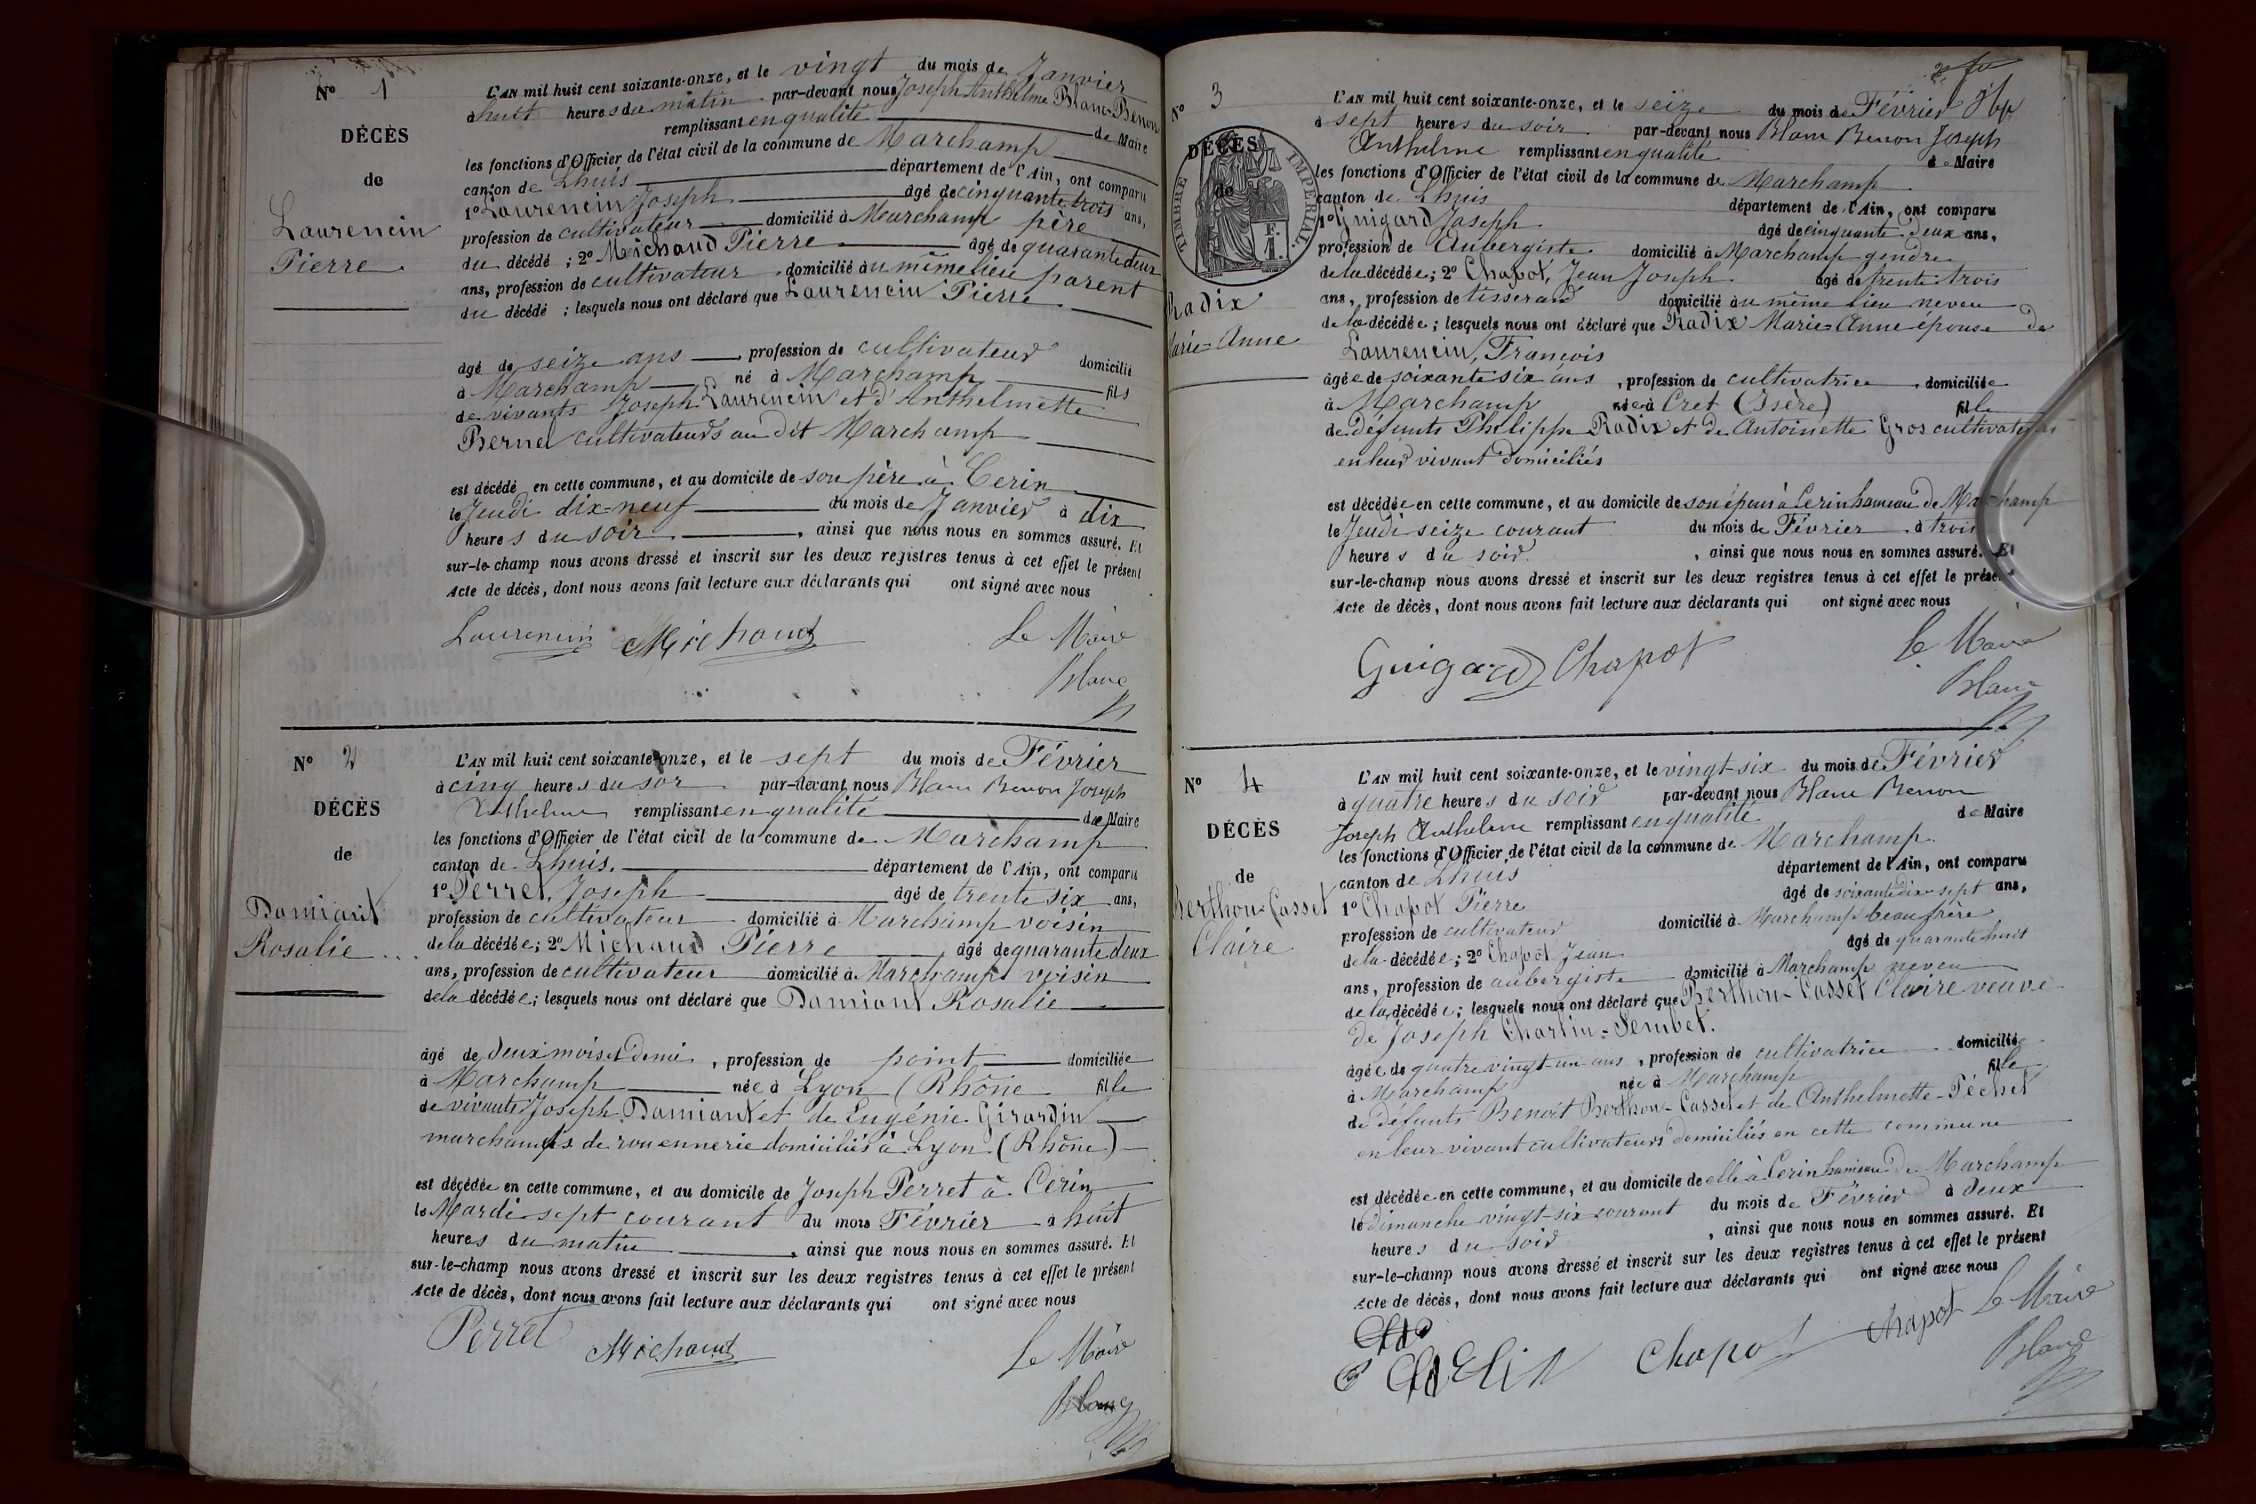 N° 1
DÉCÈS
de
Laurencin
Pierre
L'AN mil huit cent soixante-onze, et le vingt du mois de Janvier
à huit heures du matin par-devant nous Joseph Anthelme Blanc-Benon
remplissant en qualité de Maire
les fonctions d'Officier de l'état civil de la commune de Marchamp
canton de Lhuis département de l'Ain, ont comparu
1° Laurencin Joseph âgé de cinquante trois ans,
profession de cultivateur domicilié à Marchamp père
du décédé ; 2° Michaud Pierre âgé de quarante deux
ans, profession de cultivateur domicilié au même lieu parent
du décédé ; lesquels nous ont déclaré que Laurencin Pierre
âgé de seize ans, profession de cultivateur domicilié
à Marchamp né à Marchamp fils
de vivants Joseph Laurencin et d'Anthelmette
Bernel cultivateurs au dit Marchamp
est décédé en cette commune, et au domicile de son père à Cerin
le Jeudi dix-neuf du mois de Janvier à dix
heures du soir, ainsi que nous nous en sommes assuré. Et
sur-le-champ nous avons dressé et inscrit sur les deux registres tenus à cet effet le présent
Acte de décès, dont nous avons fait lecture aux déclarants qui ont signé avec nous
Laurencin Michaud Le Maire
Blanc
N° 2
DÉCÈS
de
Damiant
Rosalie
L'AN mil huit cent soixante-onze, et le sept du mois de Février
à cinq heures du soir par-devant nous Blanc Benon Joseph
Anthelme remplissant en qualité de Maire
les fonctions d'Officier de l'état civil de la commune de Marchamp
canton de Lhuis. département de l'Ain, ont comparu
1° Perret, Joseph âgé de trente six ans,
profession de cultivateur domicilié à Marchamp voisin
de la décédée ; 2° Michaud Pierre âgé de quarante deux
ans, profession de cultivateur domicilié à Marchamp voisin
de la décédée ; lesquels nous ont déclaré que Damiant Rosalie
âgé de deux mois et demi, profession de point domiciliée
à Marchamp née à Lyon (Rhône fille
de vivants Joseph Damiant et de Eugénie Girardin
marchands de rouennerie domiciliés à Lyon (Rhône)
est décédée en cette commune, et au domicile de Joseph Perret à Cerin
le Mardi sept courant du mois Février à huit
heures du matin, ainsi que nous nous en sommes assuré. Et
sur-le-champ nous avons dressé et inscrit sur les deux registres tenus à cet effet le présent
Acte de décès, dont nous avons fait lecture aux déclarants qui ont signé avec nous
Perret Michaud Le Maire
Blanc
N° 3
DÉCÈS
de
TIMBRE IMPÉRIAL
Radix
Marie-Anne
L'AN mil huit cent soixante-onze, et le seize du mois de Février
à sept heures du soir par-devant nous Blanc Benon Joseph
Anthelme remplissant en qualité de Maire
les fonctions d'Officier de l'état civil de la commune de Marchamp
canton de Lhuis département de l'Ain, ont comparu
1° Guigard Joseph âgé de cinquante deux ans,
profession de Aubergiste domicilié à Marchamp gendre
de la décédée ; 2° Chapot, Jean Joseph âgé de trente trois
ans, profession de tisserand domicilié au même lieu neveu
de la décédée ; lesquels nous ont déclaré que Radix Marie-Anne épouse de
Laurencin, François
âgée de soixante six ans, profession de cultivatrice, domiciliée
à Marchamp née à Cret (Isère) fille
de défunts Philippe Radix et de Antoinette Gros cultivateurs
en leur vivant domiciliés
est décédée en cette commune, et au domicile de son époux à Cerin hameau de Marchamp
le Jeudi seize courant du mois de Février à trois
heures du soir, ainsi que nous nous en sommes assuré. Et
sur-le-champ nous avons dressé et inscrit sur les deux registres tenus à cet effet le présent
Acte de décès, dont nous avons fait lecture aux déclarants qui ont signé avec nous
Guigard Chapot Le Maire
Blanc
N° 4
DÉCÈS
de
Berthon-Casset
Claire
L'AN mil huit cent soixante-onze, et le vingt-six du mois de Février
à quatre heures du soir par-devant nous Blanc Benon
Joseph Anthelme remplissant en qualité de Maire
les fonctions d'Officier de l'état civil de la commune de Marchamp
canton de Lhuis département de l'Ain, ont comparu
1° Chapot Pierre âgé de soixante dix sept ans,
profession de cultivateur domicilié à Marchamp beau frère
de la décédée ; 2° Chapot Jean âgé de quarante huit
ans, profession de aubergiste domicilié à Marchamp neveu
de la décédée ; lesquels nous ont déclaré que Berthon-Casset Claire veuve
de Joseph Charlin-Sembet.
âgée de quatre vingt-un ans, profession de cultivatrice domiciliée
à Marchamp née à Marchamp fille
de défunts Benoît Berthon-Casset et de Anthelmette Péchet
en leur vivant cultivateurs domiciliés en cette commune
est décédée en cette commune, et au domicile de elle à Cerin hameau de Marchamp
le dimanche vingt-six courant du mois de Février à deux
heures du soir, ainsi que nous nous en sommes assuré. Et
sur-le-champ nous avons dressé et inscrit sur les deux registres tenus à cet effet le présent
Acte de décès, dont nous avons fait lecture aux déclarants qui ont signé avec nous
Chapot Chapot Le Maire
Blanc